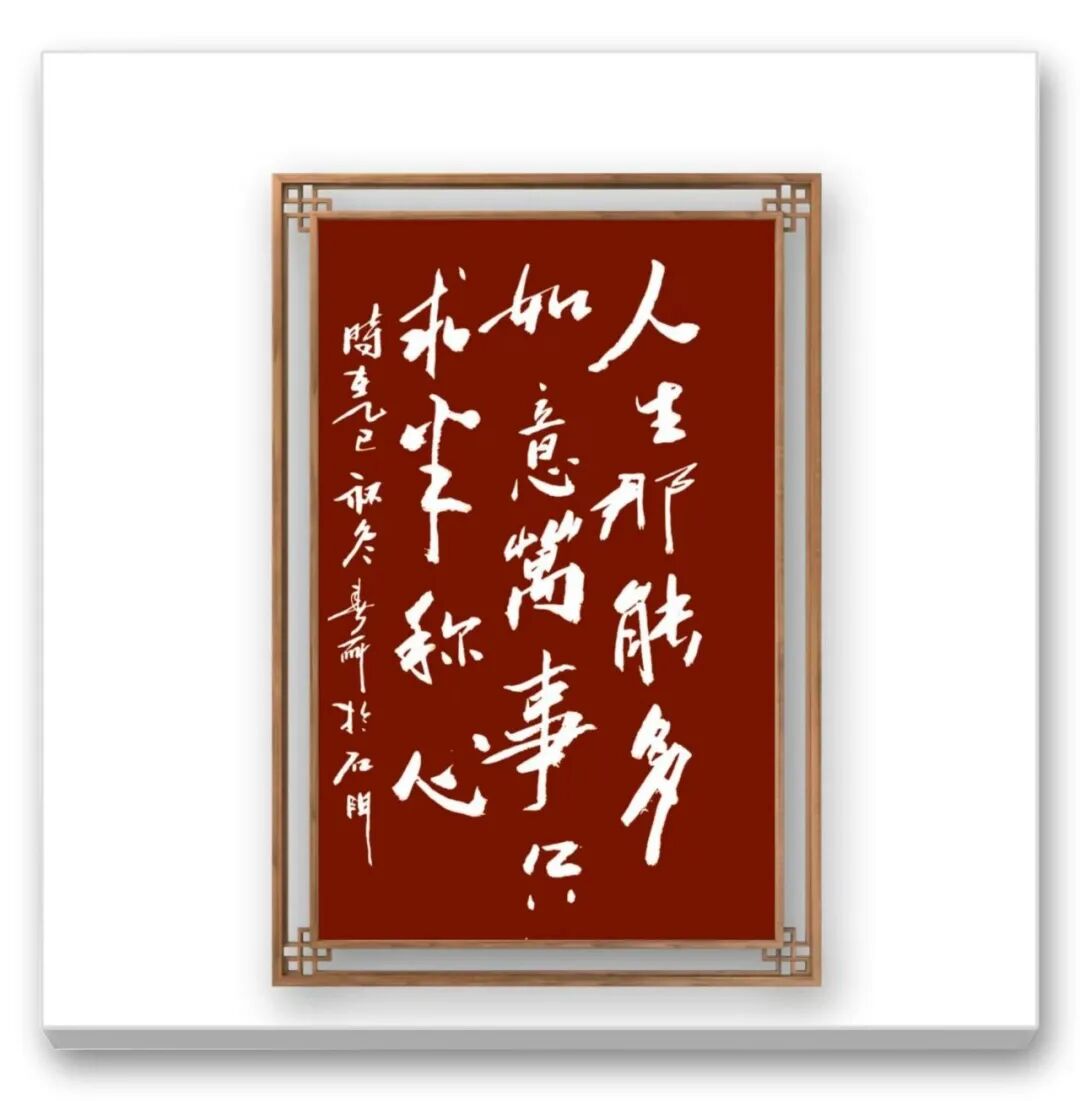 人生那能多
如意萬事只
求半称心
時在乙巳初冬喜研於石門